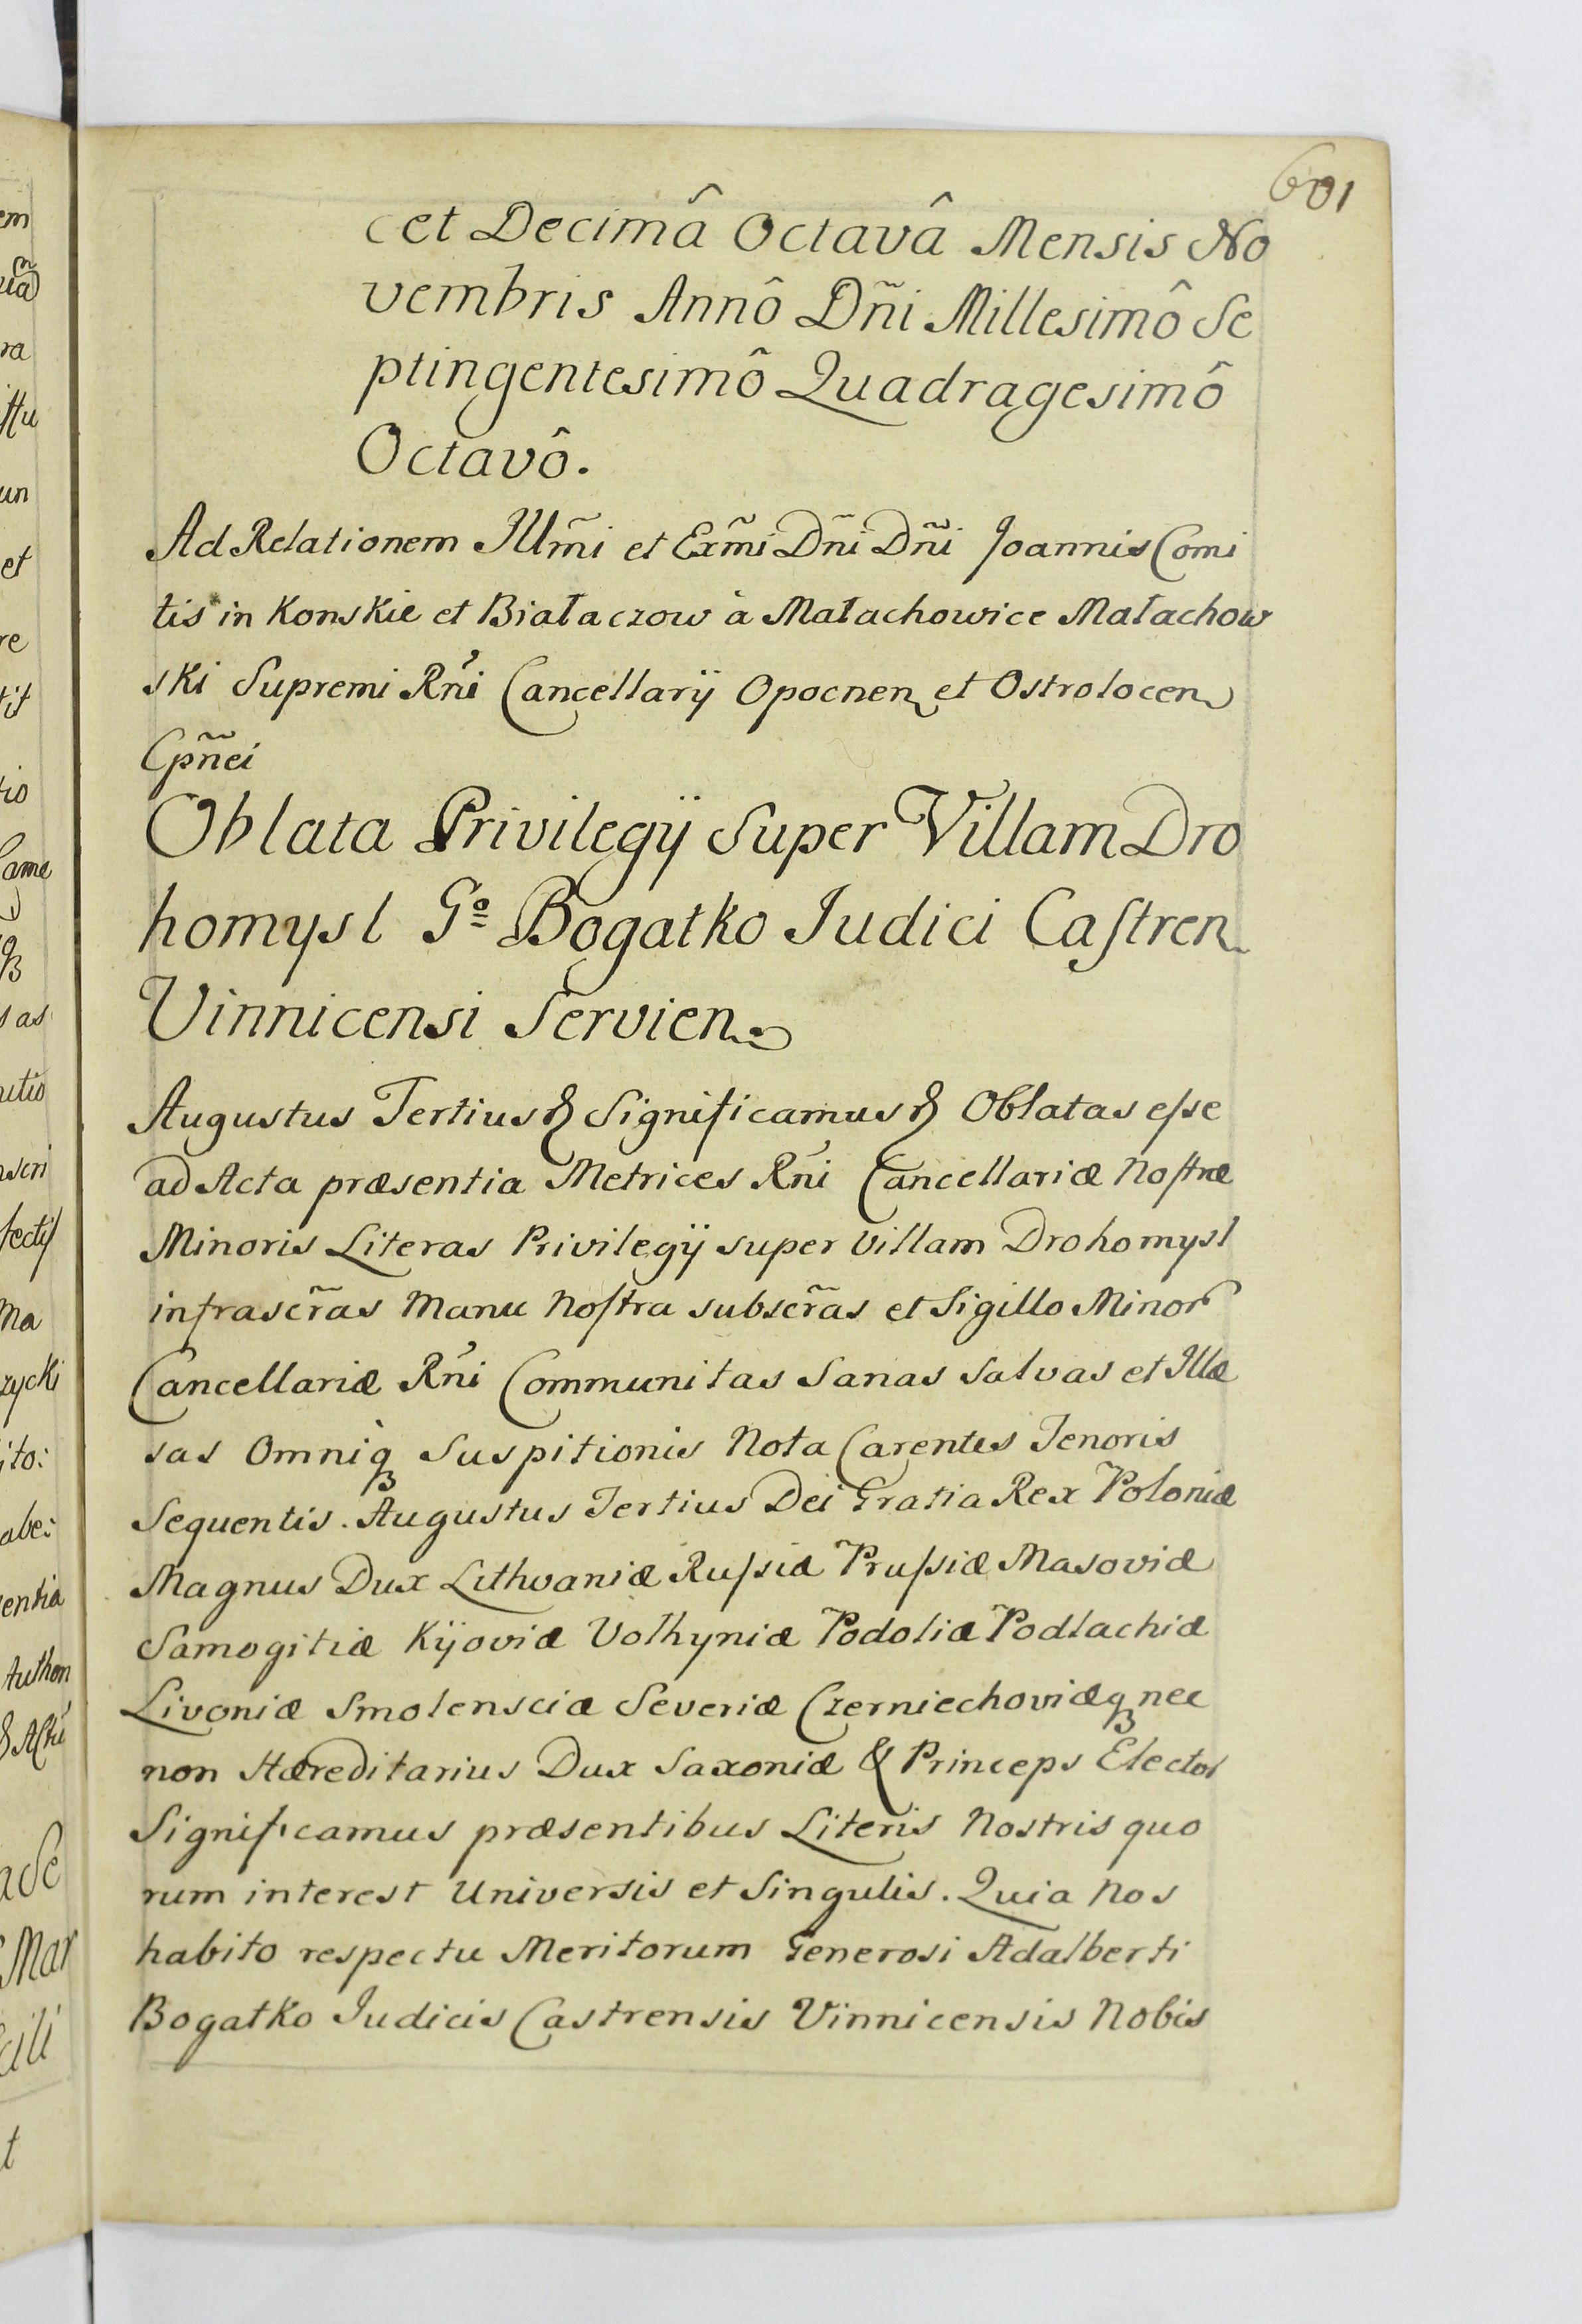 601
cet Decimâ Octavâ Mensis No
vembris Annô Dñi Millesimô Se
ptingentesimô Quadragesimô
Octavô.
Ad Relationem Illm̃i et Exm̃i Dñi Dñi Joannis Comi
tis in Konskie et Białaczow à Małachowice Małachow
ski Supremi Rñi Cancellarÿ Opocnen et Ostrolocen
Cpñei
Oblata Privilegÿ Super Villam Dro
homysl Gº Bogatko Judici Caſtren
Vinnicensi Servien.
Augustus Tertius & Significamus & Oblatas eſse
ad Acta præsentia Metrices Rñi Cancellariæ Noſtræ
Minoris Literas Privilegÿ super Villam Drohomysl
infrascr̃as Manu Noſtra subscr̃as et Sigillo Minor
Cancellariæ Rñi Communitas Sanas Salvas et Illæ
sas Omniq́ꝫ Suspitionis Nota Carentes Tenoris
Sequentis. Augustus Tertius Dei Gratia Rex Poloniæ
Magnus Dux Lithvaniæ Ruſsiæ Pruſsiæ Masoviæ
Samogitiæ Kÿoviæ Volhyniæ Podoliæ Podlachiæ
Livoniæ Smolensciæ Severiæ Czerniechoviæqꝫ nec
non Hæreditarius Dux Saxoniæ & Princeps Elector
Significamus præsentibus Literis Nostris quo
rum interest Universis et Singulis. Quia Nos
habito respectu Meritorum Generosi Adalberti
Bogatko Judicis Castrensis Vinnicensis Nobis